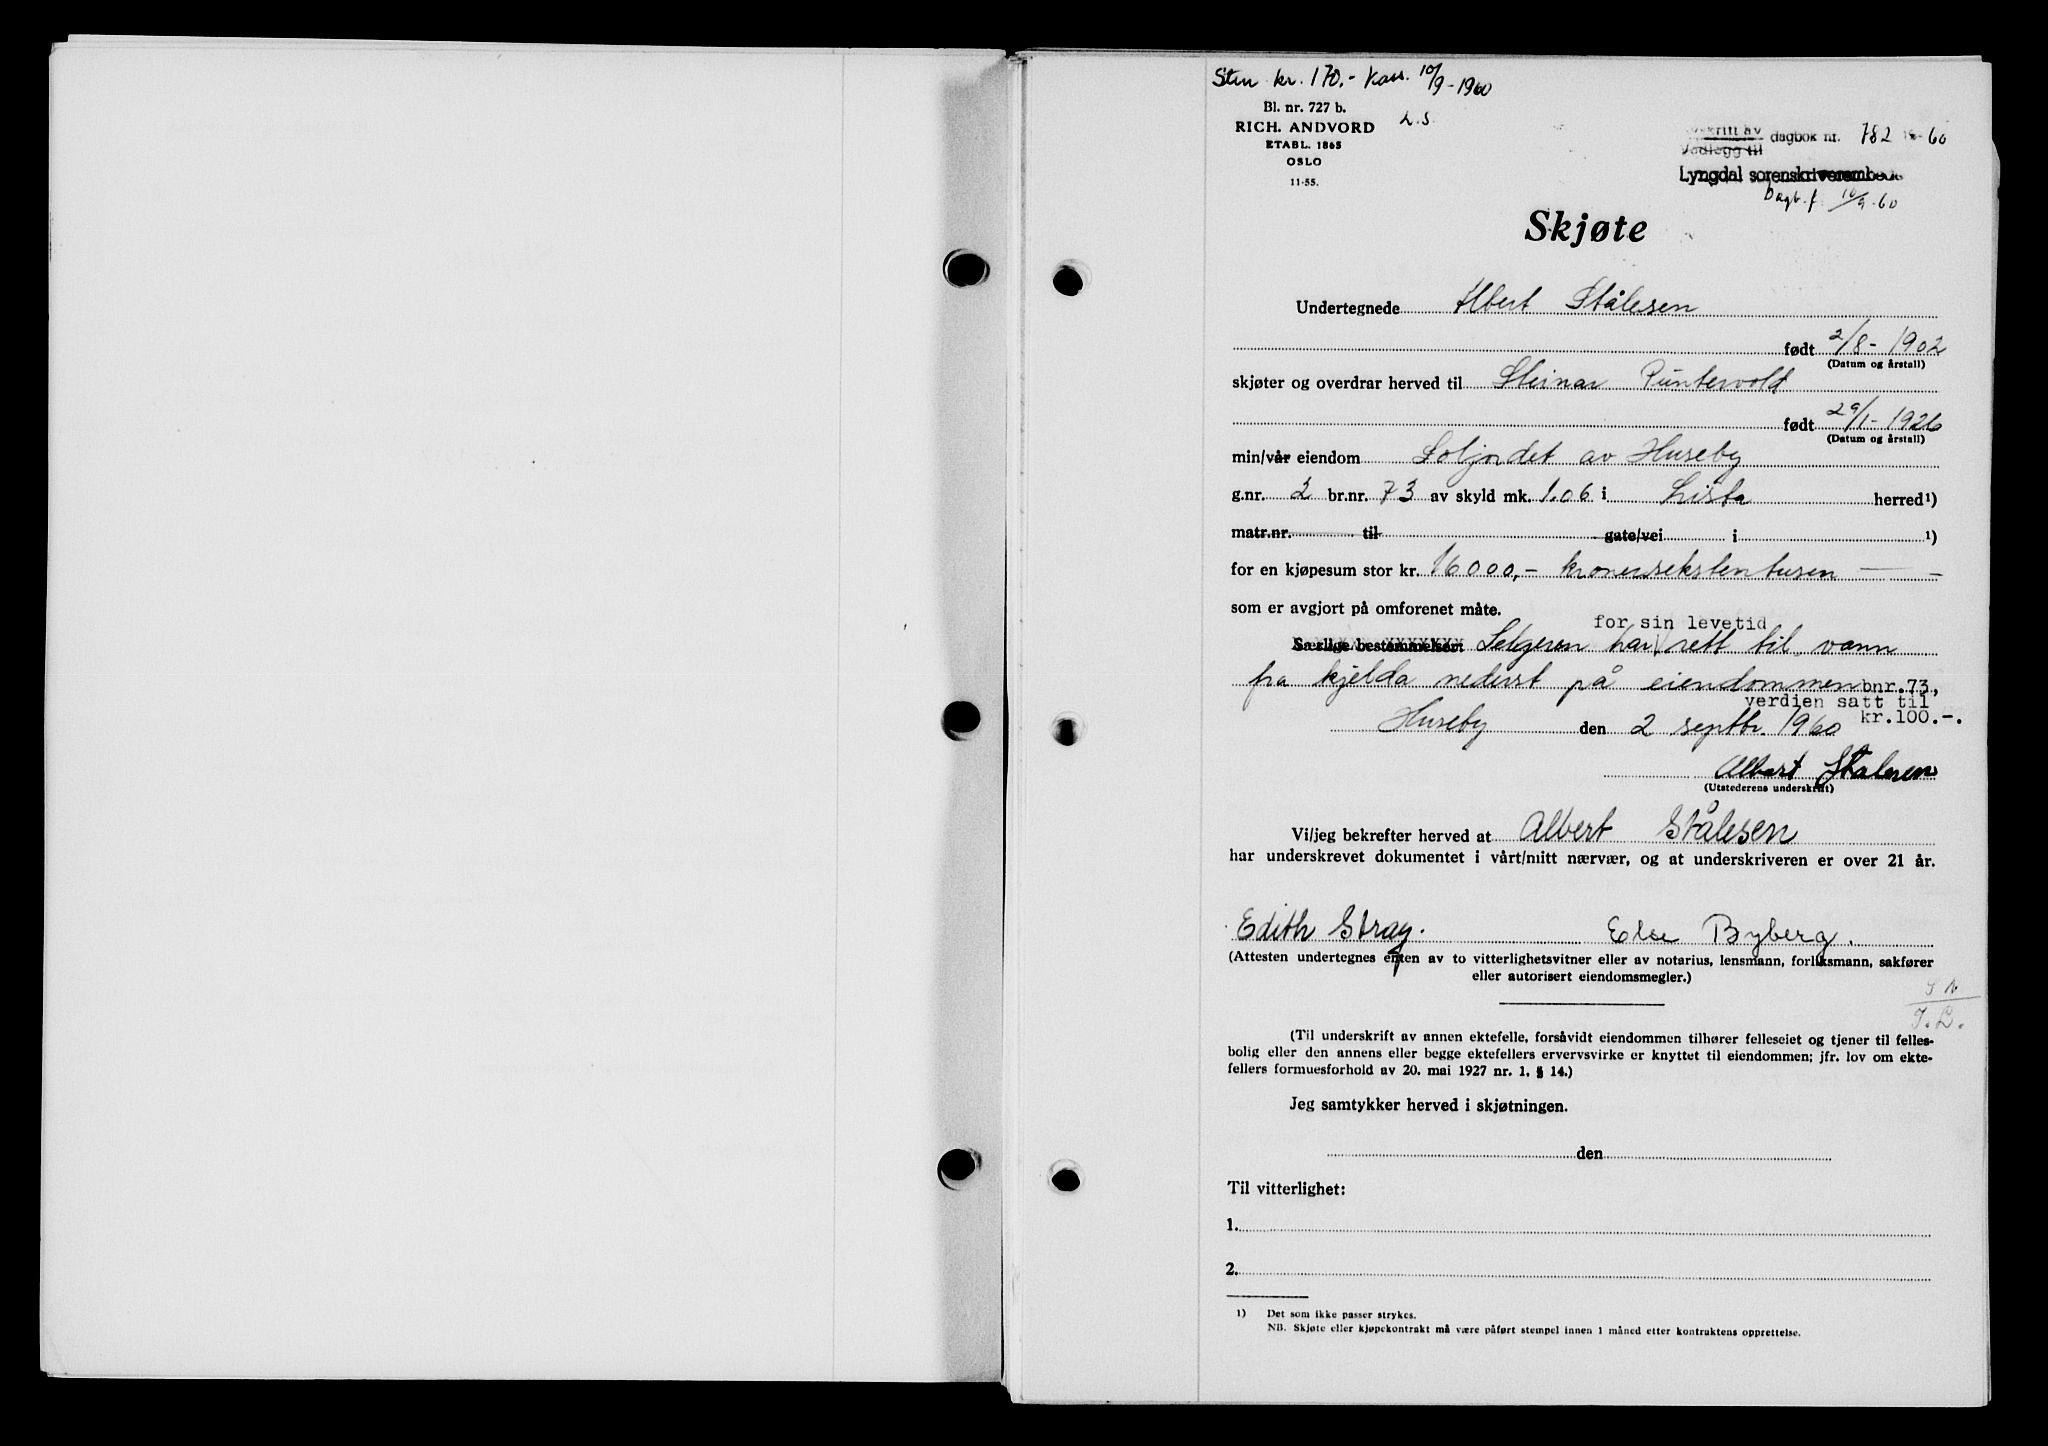 Stm kr. 170.- Kass. 10/9-1960
Bl. nr. 727 b.
RICH. ANDVORD
ETABL. 1865
OSLO
11-55.
L.S.
Avskrift av dagbok nr. 782 19-60
Vedlegg til
Lyngdal sorenskriverembede
Dagb.f. 10/9-60
Skjøte
Undertegnede Albert Stålesen
født 2/8-1902
(Datum og årstall)
skjøter og overdrar herved til Steinar Puntervold
født 29/1-1926
(Datum og årstall)
min/vår eiendom Soljordet av Huseby
g.nr. 2 br.nr. 73 av skyld mk. 1.06 i Lista herred¹)
matr.nr. til gate/vei i ¹)
for en kjøpesum stor kr. 16000,- kronersekstentusen
som er avgjort på omforenet måte.
for sin levetid
Særlige bestemmelser: Selgeren har rett til vann
fra kjelda nederst på eiendommen bnr.73,
verdien satt til
kr.100.-.
Huseby den 2 septbr. 1960
Albert Stalesen
(Utstederens underskrift)
Vi/jeg bekrefter herved at Albert Stålesen
har underskrevet dokumentet i vårt/mitt nærvær, og at underskriveren er over 21 år.
Edith Stray. Else Byberg.
(Attesten undertegnes enten av to vitterlighetsvitner eller av notarius, lensmann, forliksmann, sakfører
eller autorisert eiendomsmegler.)
J.L.
(Til underskrift av annen ektefelle, forsåvidt eiendommen tilhører felleseiet og tjener til felles-
bolig eller den annens eller begge ektefellers ervervsvirke er knyttet til eiendommen; jfr. lov om ekte-
fellers formuesforhold av 20. mai 1927 nr. 1, § 14.)
Jeg samtykker herved i skjøtningen.
den
Til vitterlighet:
1.
2.
1) Det som ikke passer strykes.
NB. Skjøte eller kjøpekontrakt må være påført stempel innen 1 måned etter kontraktens opprettelse.